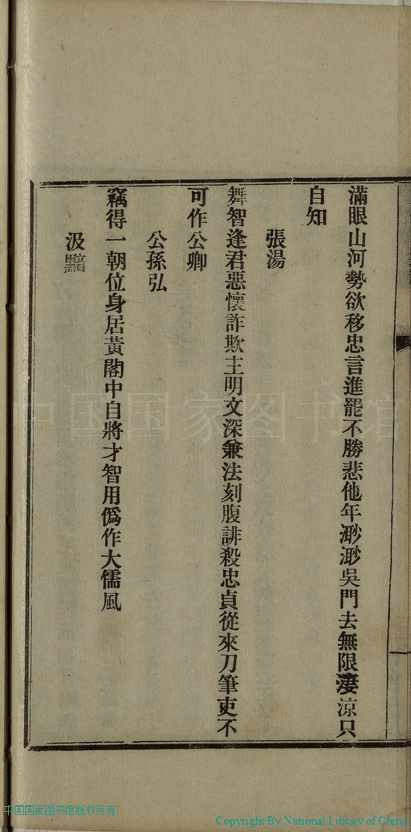 滿眼山河勢欲移忠言進罷不勝悲他年渺渺吳門去無限淒涼只
自知
張湯
舞智逢君惡懷詐欺主明文深兼法刻腹誹殺忠貞從來刀筆吏不
可作公卿
公孫弘
竊得一朝位身居黃閣中自將才智用僞作大儒風
汲黯
中国国家图书馆
中国国家图书馆版权所有
Copyright By National Library of China